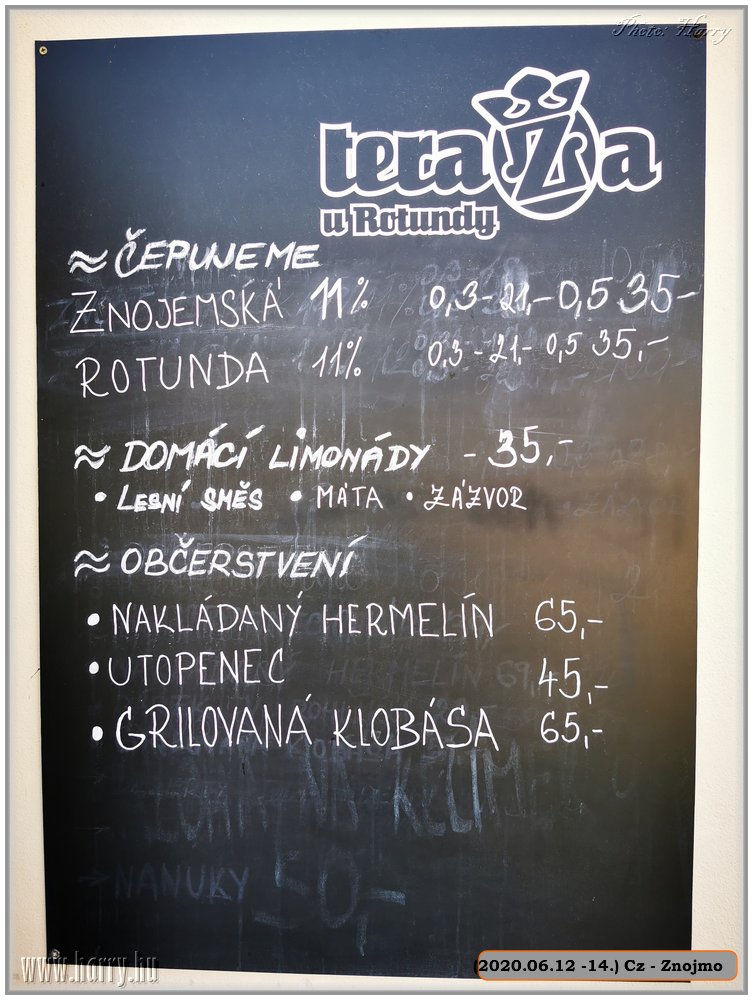 Photo: Harry
teraZa
u Rotundy
≈ ČEPUJEME
ZNOJEMSKÁ 11% 0,3-21,- 0,5 35-
ROTUNDA 11% 0,3-21,- 0,5 35,-
≈ DOMÁCÍ LIMONÁDY - 35,-
• LESNÍ SMĚS • MÁTA • ZÁZVOR
≈ OBČERSTVENÍ
• NAKLÁDANÝ HERMELÍN 65,-
• UTOPENEC 45,-
• GRILOVANÁ KLOBÁSA 65,-
NA KELÍM
→ NANUKY 50,-
www.harry.hu
(2020.06.12 -14.) Cz - Znojmo